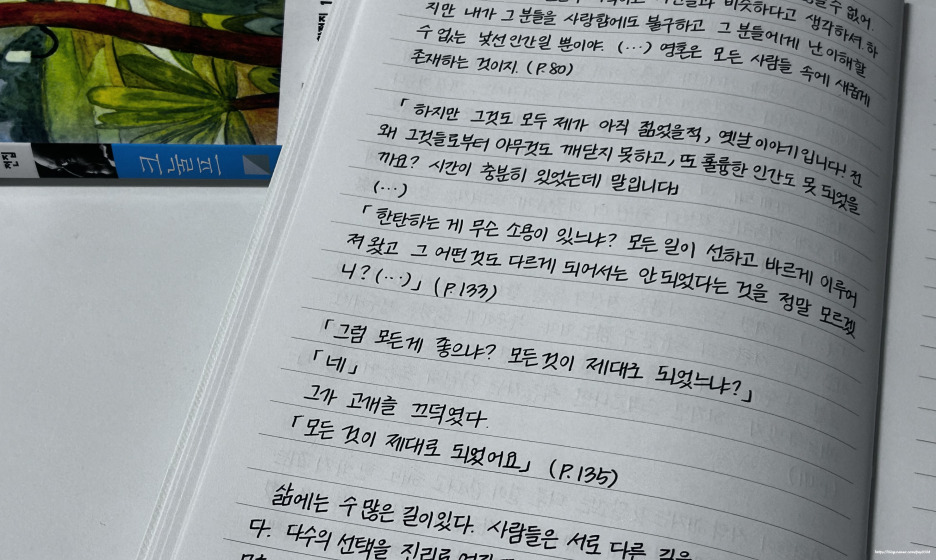 비슷하다고 생각하셔. 하
지만 내가 그 분들을 사랑함에도 불구하고 그 분들에게 난 이해할
수 없는 낯선 인간일 뿐이야. (…) 영혼은 모든 사람들 속에 새롭게
존재하는 것이지. (P.80)
「 하지만 그것도 모두 제가 아직 젊었을적, 옛날 이야기 입니다! 전
왜 그것들로부터 아무것도 깨닫지 못하고, 또 훌륭한 인간도 못 되었을
까요? 시간이 충분히 있었는데 말입니다」
(…)
「 한탄하는 게 무슨 소용이 있느냐? 모든 일이 선하고 바르게 이루어
져 왔고 그 어떤 것도 다르게 되어서는 안 되었다는 것을 정말 모르겠
니? (…)」 (P.133)
「그럼 모든게 좋으냐? 모든것이 제대로 되었느냐?」
「네」
그가 고개를 끄덕였다.
「모든 것이 제대로 되었어요」 (P.135)
삶에는 수 많은 길이있다. 사람들은 서로 다른 길을
다. 다수의 선택을 진리로
크눌프